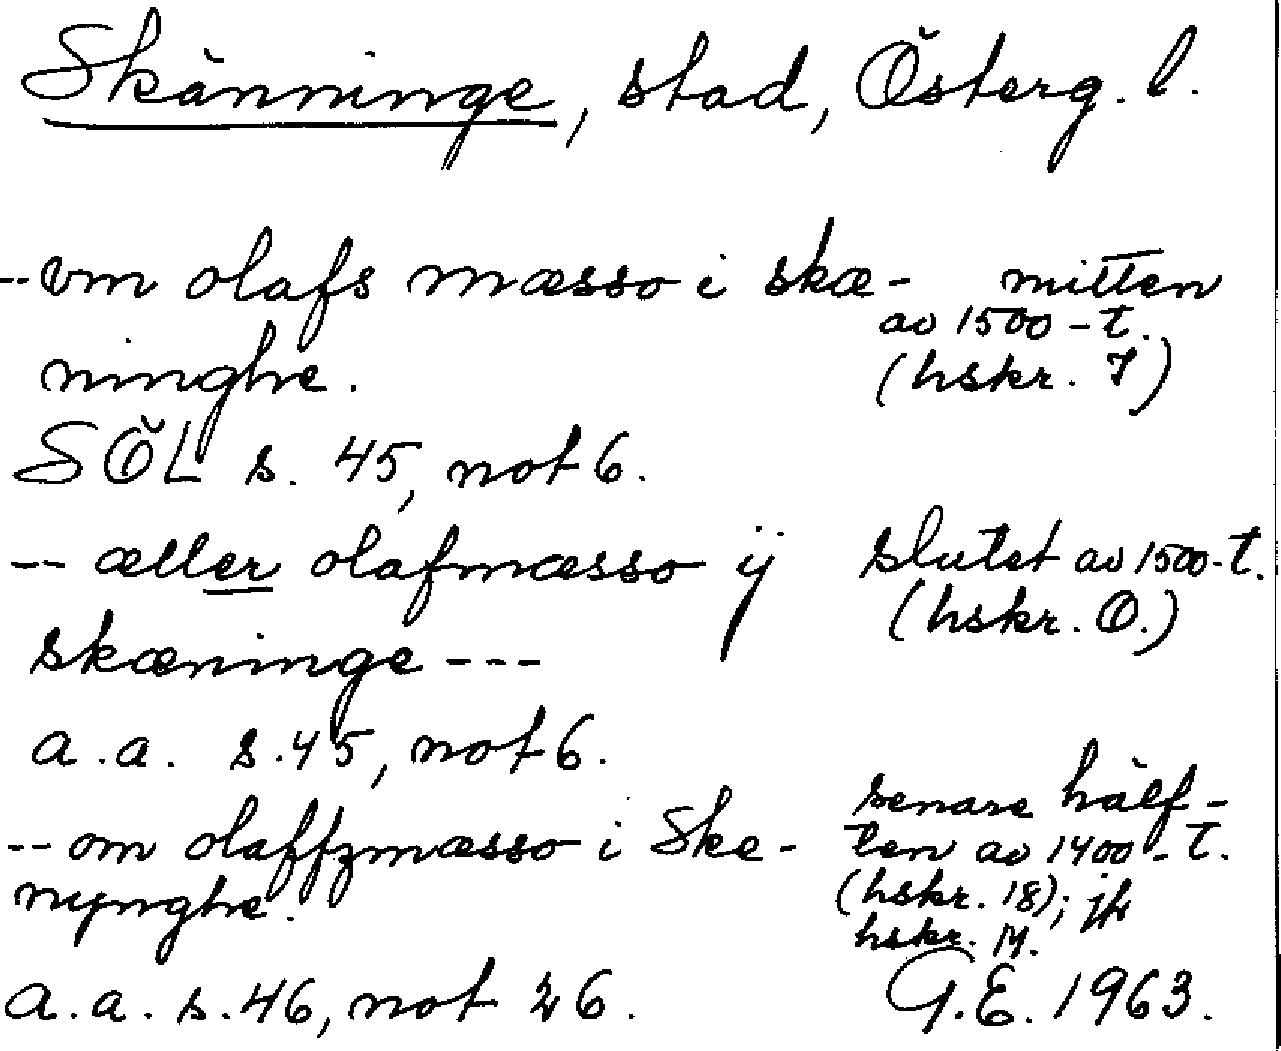 Skänninge, stad, Österg. l.
-- vm olafs mæsso i skæ- mitten
av 1500-t.
ninghe. (hskr. 7)
SÖL s. 45, not 6.
-- æller olafmæsso ij slutet av 1500-t.
(hskr. O.)
skæninge ---
a.a. s. 45, not 6.
senare hälf-
-- om olaffzmæsso i Ske- ten av 1400-t.
nynghe. (hskr. 18); jfr
hskr. M.
a.a. s. 46, not 26. G.E. 1963.